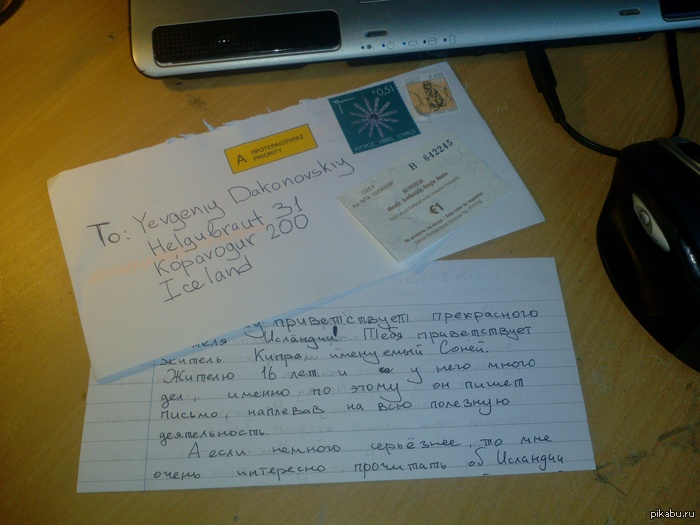 €0,51
ΚΥΠΡΟΣ KIBRIS CYPRUS
Α ΠΡΟΤΕΡΑΙΟΤΗΤΑΣ
PRIORITY
B 642245
€1
To: Yevgeniy Dakonovskiy
Helgubraut 31
Kópavogur 200
Iceland
приветствует прекрасного
Исландии! Тебя приветствует
житель Кипра, именуемый Соней.
Жителю 16 лет и у него много
дел, именно по этому он пишет
письмо, наплевав на всю полезную
деятельность.
А если немного серьёзнее, то мне
очень интересно прочитать об Исландии
pikabu.ru